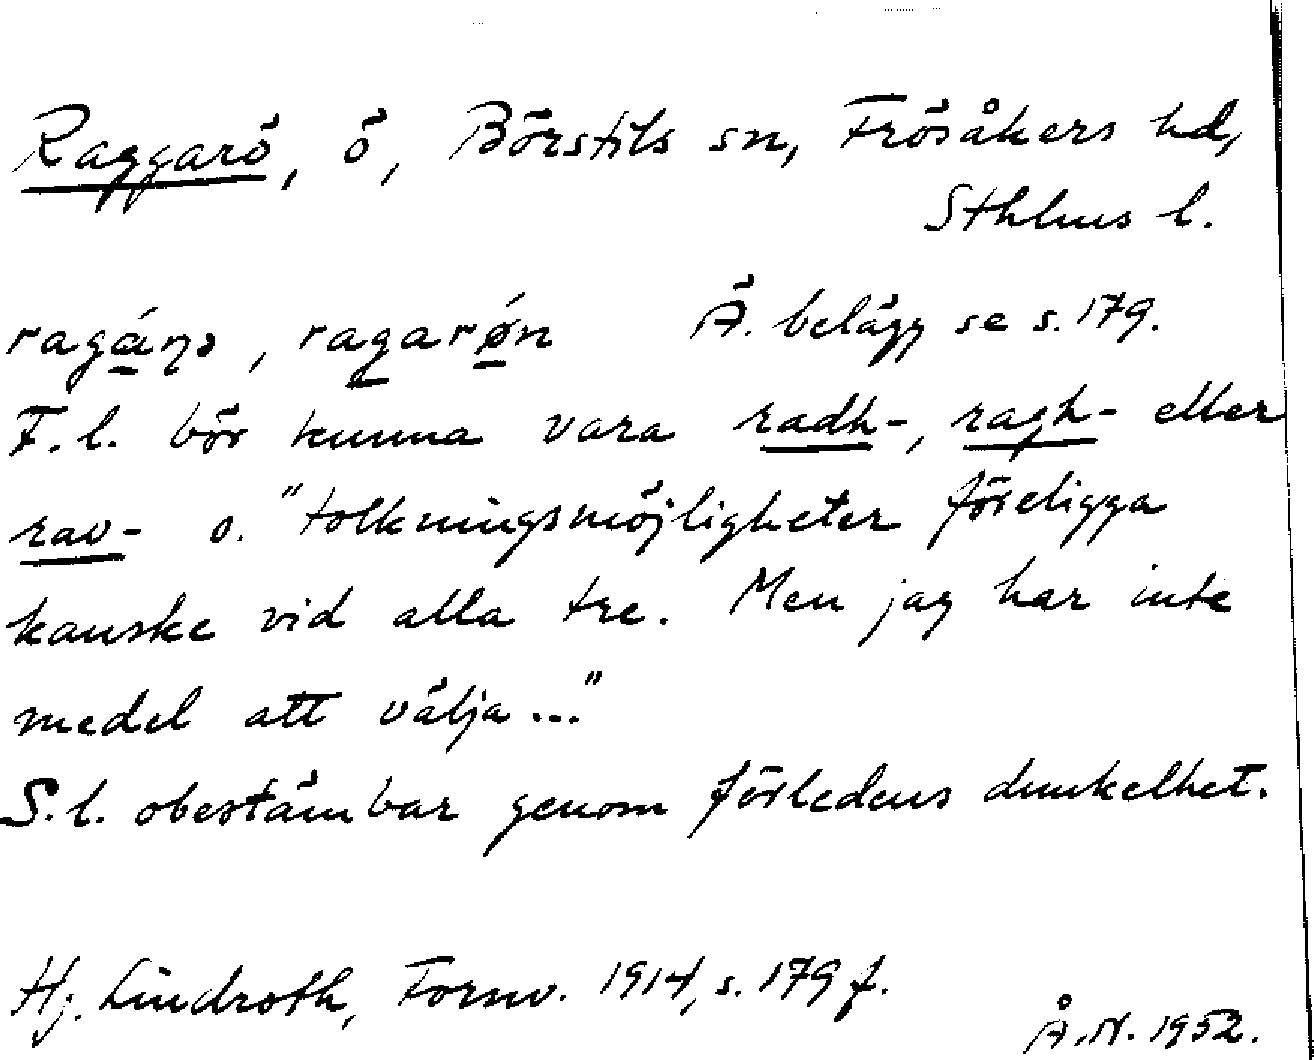 Raggarö, ö, Börstils sn, Frösåkers hd,
Sthlms l.
ragáṇə, ragarǿn Ä. belägg se s. 179.
F.l. bör kunna vara radh-, ragh- eller
rav- o. "tolkningsmöjligheter föreligga
kanske vid alla tre. Men jag har inte
medel att välja..."
S.l. obestämbar genom förledens dunkelhet.
Hj. Lindroth, Fornv. 1914, s. 179 f.
Å.N. 1952.